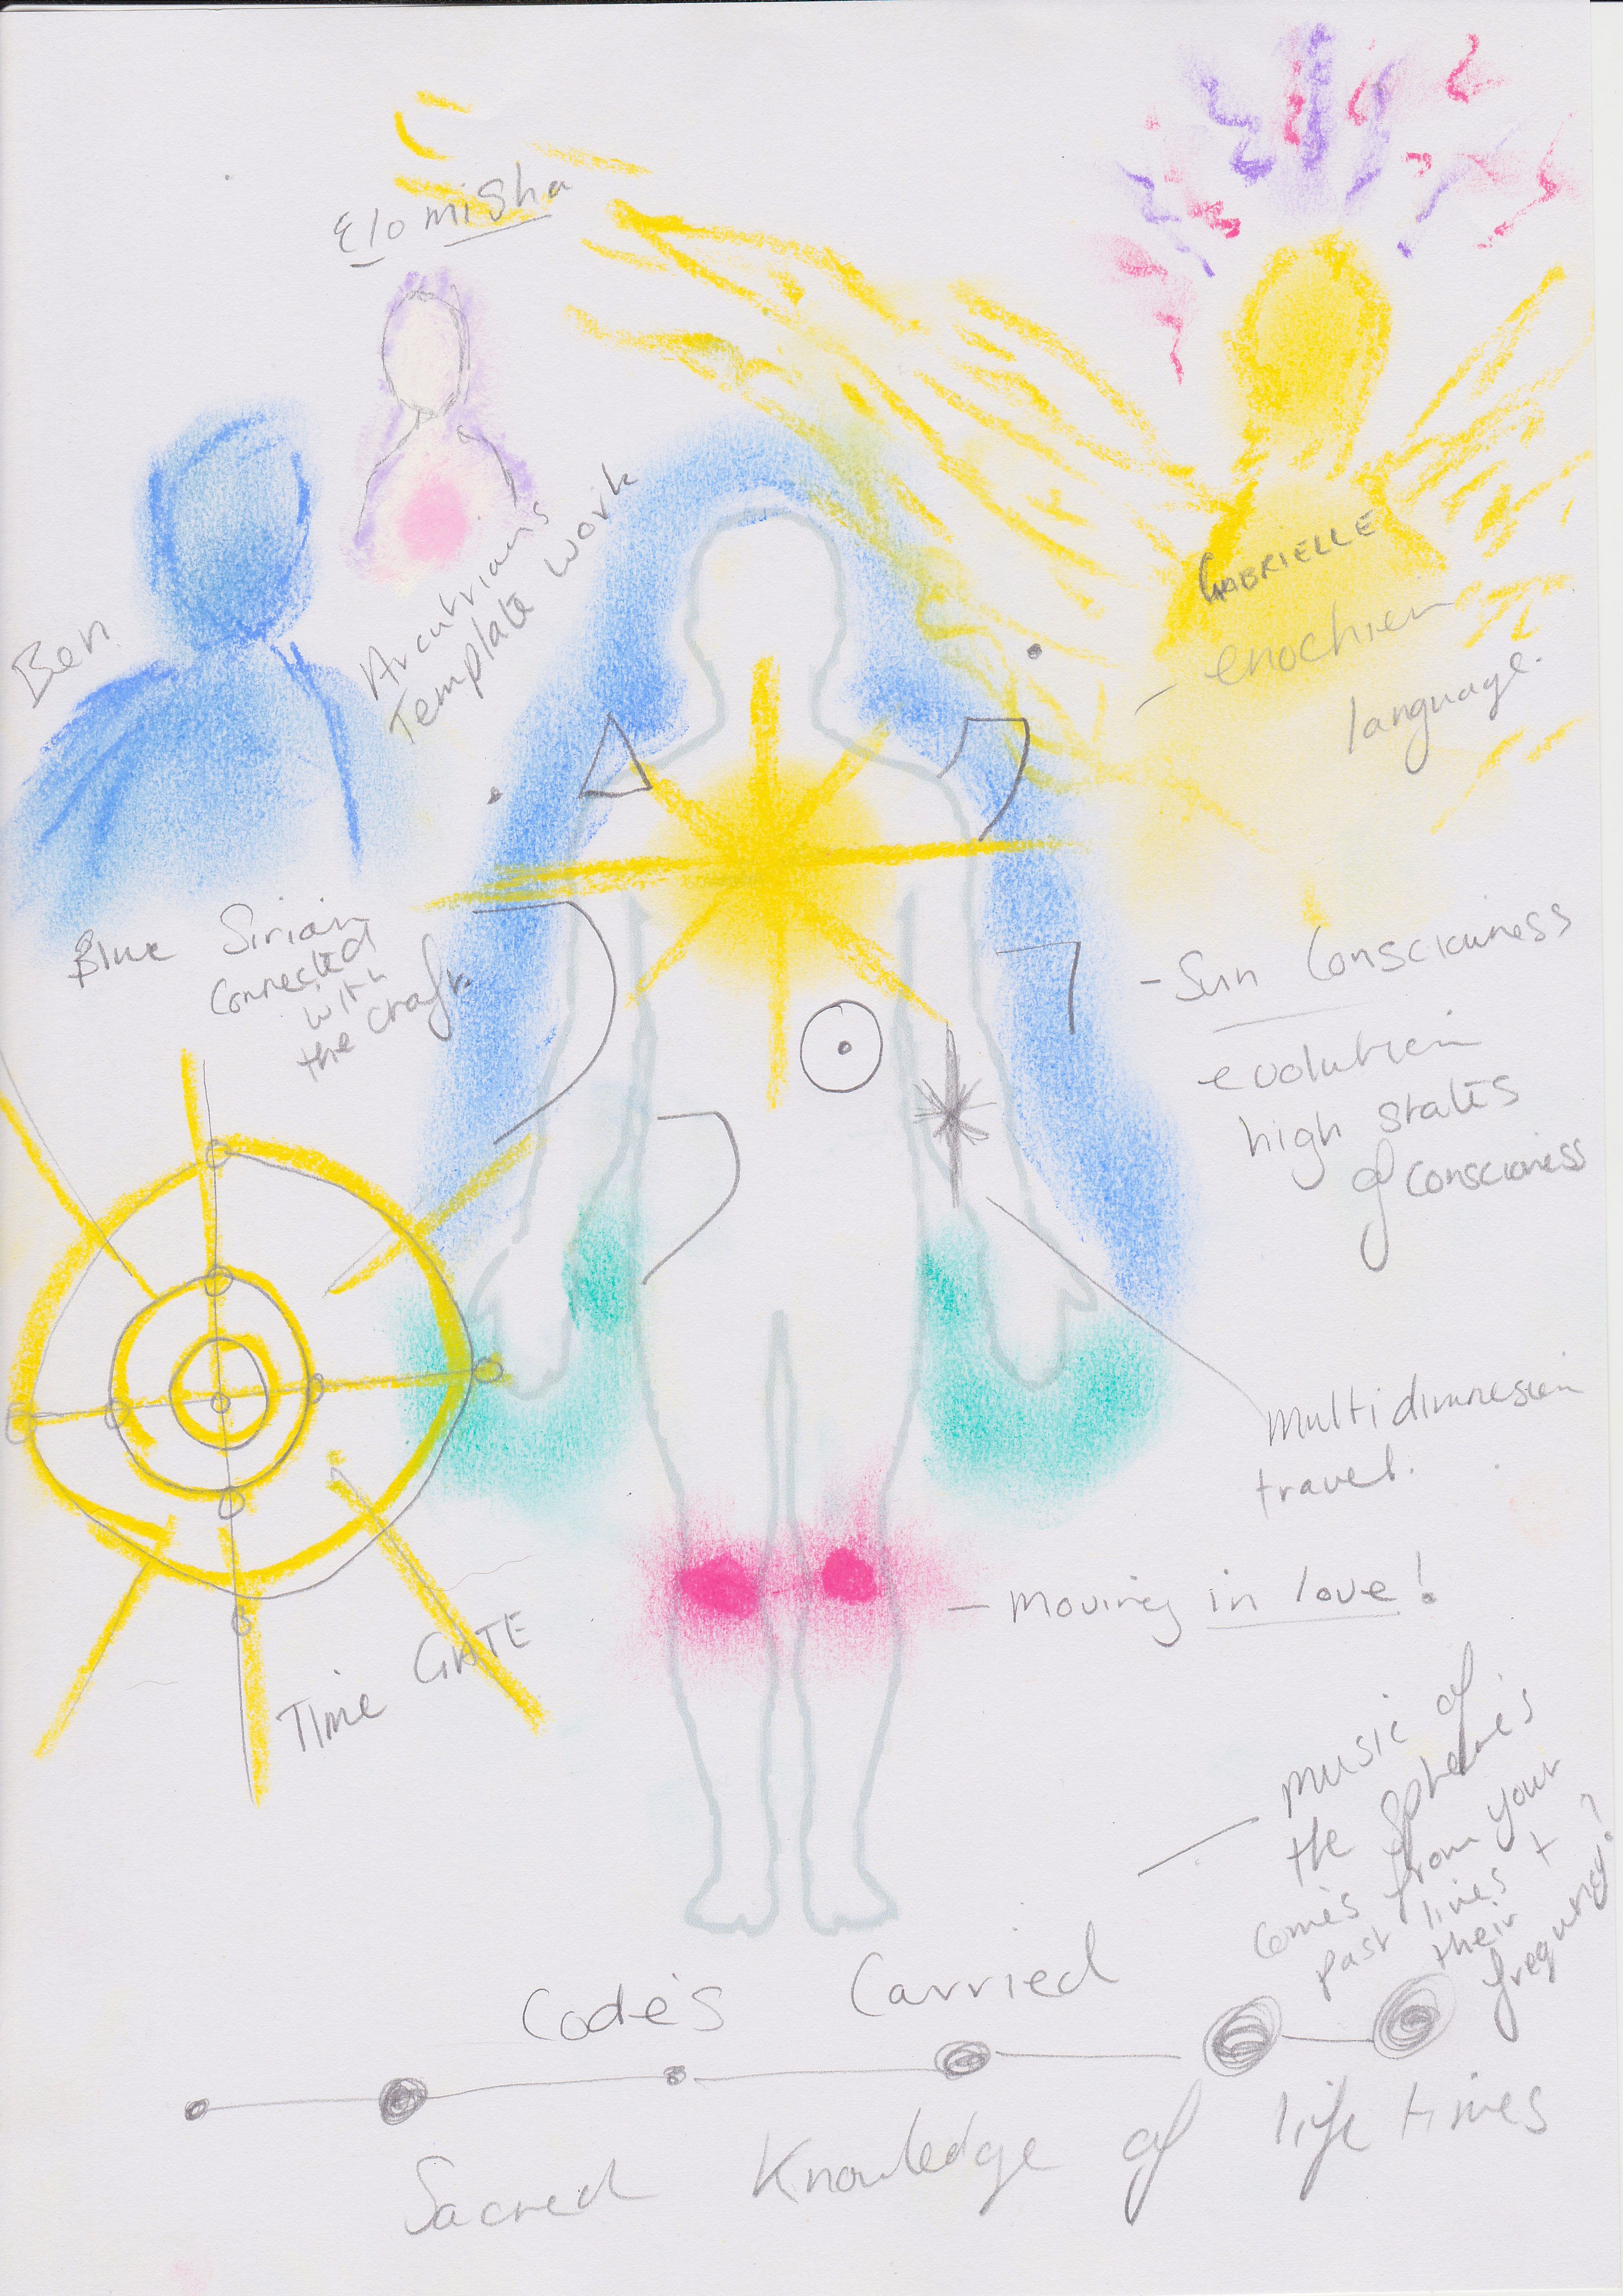 Elomisha
Ben
Arcutrians
Template work
GABRIELLE
- enochien
language.
Blue Sirian
connected
with
the craft.
- Sun Consciouness
evolution
high states
of consciouness
multidimnesion
travel.
- moving in love!
TIME GATE
- music of
the spheres
comes from your
past lives +
their
frequncy?
Code's Carried
Sacred Knowledge of life times